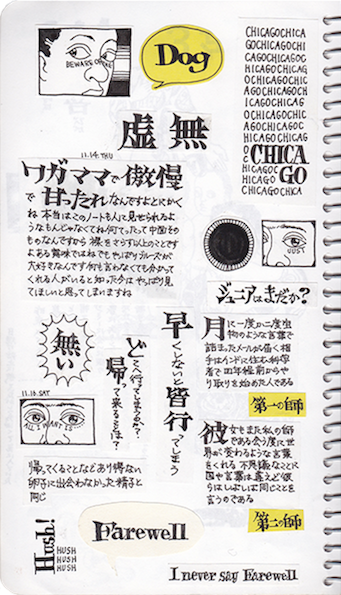 BEWARE OF
Dog
CHICAGOCHICA
GOCHICAGOCHI
CAGOCHICAGOC
HICAGOCHICAG
OCHICAGOCHIC
AGOCHICAGOCH
ICAGOCHICAGO
CHICAGO
CHICAGOCHICA
虚無
11.14.THU
ワガママで傲慢
で甘ったれなんですよとにかく
ね 本当はこのノートも人に見せられるよ
うなもんじゃなくてね何てったって中身そ
のものなんですから 裸をさらす以上のことです
よある意味ではね でもやっぱりブルースが
大好きなんです何も言わなくても分かって
くれる人がいると知った今は やっぱり見
てほしいと思ってしまいますね
JUST
ジュニアはまだか?
無い
どこへ行ってしまうか?
帰って来るとは?
早くしないと皆行ってしまう
月に一度か二度虫
物のような言葉で
詰まったメールが届く相
手はインドに住む科学
者で四年程前からや
り取りを始めた人である
第一の師
11.16.SAT
ALL I WANT IS
彼女もまた私の師
である会う度に世
界が変わるような言葉
をくれる 不思議なことに
国や言葉は違えど彼
らはしばしば同じことを
言うのである
第二の師
帰ってくることなどあり得ない
卵子に出会わなかった精子と
同じ
Hush!
HUSH
HUSH
HUSH
Farewell
I never say Farewell